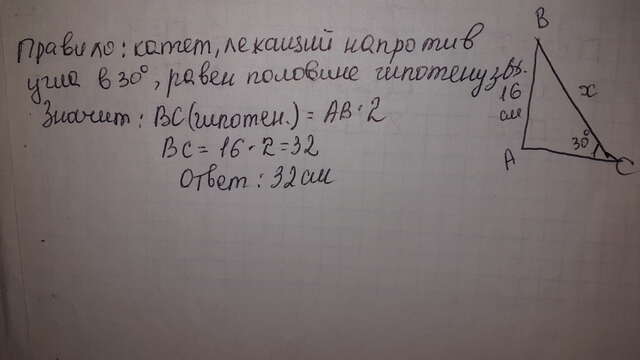 Правило: катет, лежащий напротив
угла в 30°, равен половине гипотенузы.
Значит: BC (гипотен.) = AB · 2
BC = 16 · 2 = 32
Ответ: 32 см
B
16
см
x
30°
A
C